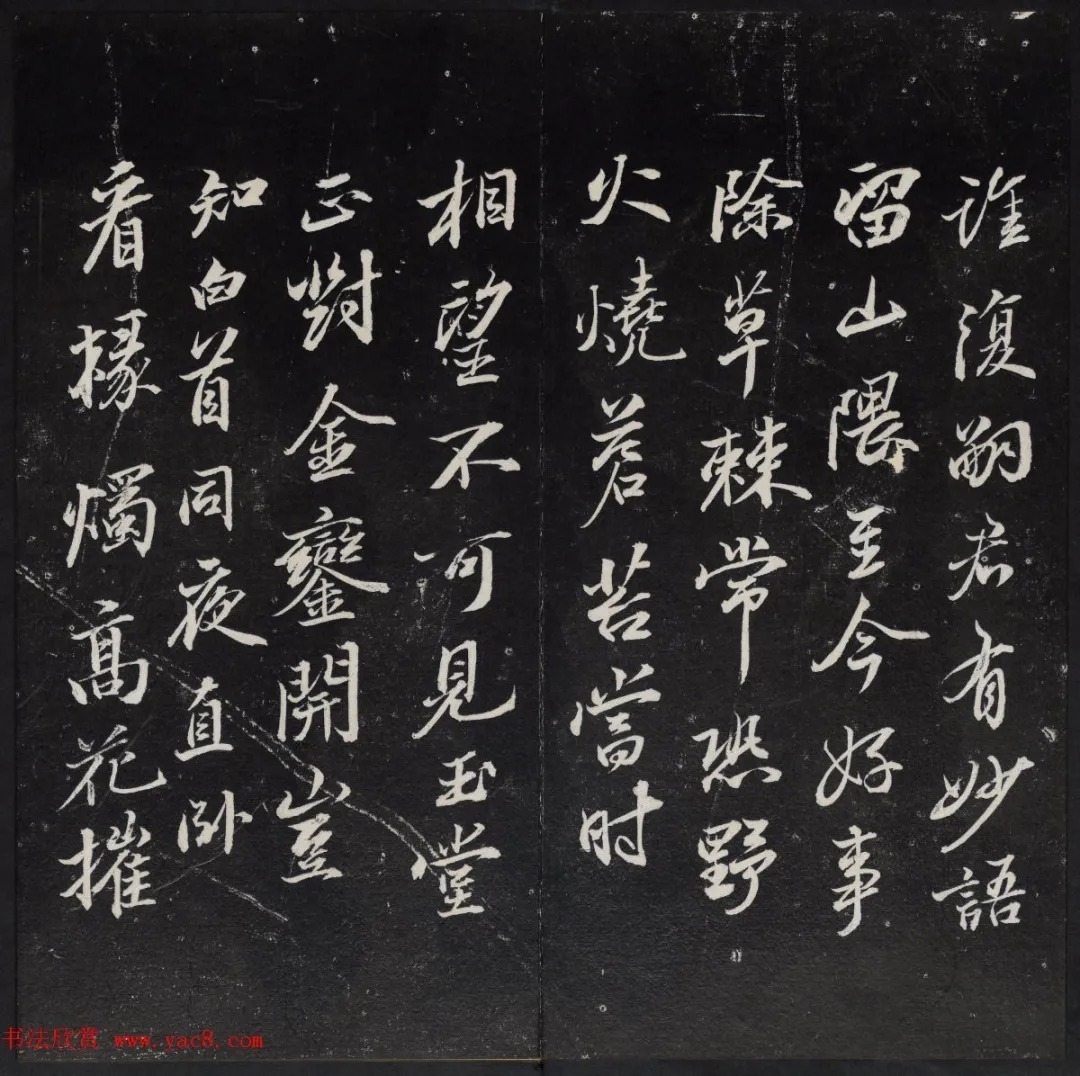 誰復嗣君有妙語
留山隈至今好事
除草棘常恐野
火燒蒼苔當时
相望不可見玉堂
正對金鑾開豈
知白首同夜直卧
看椽燭高花摧
书法欣赏 www.yac8.com